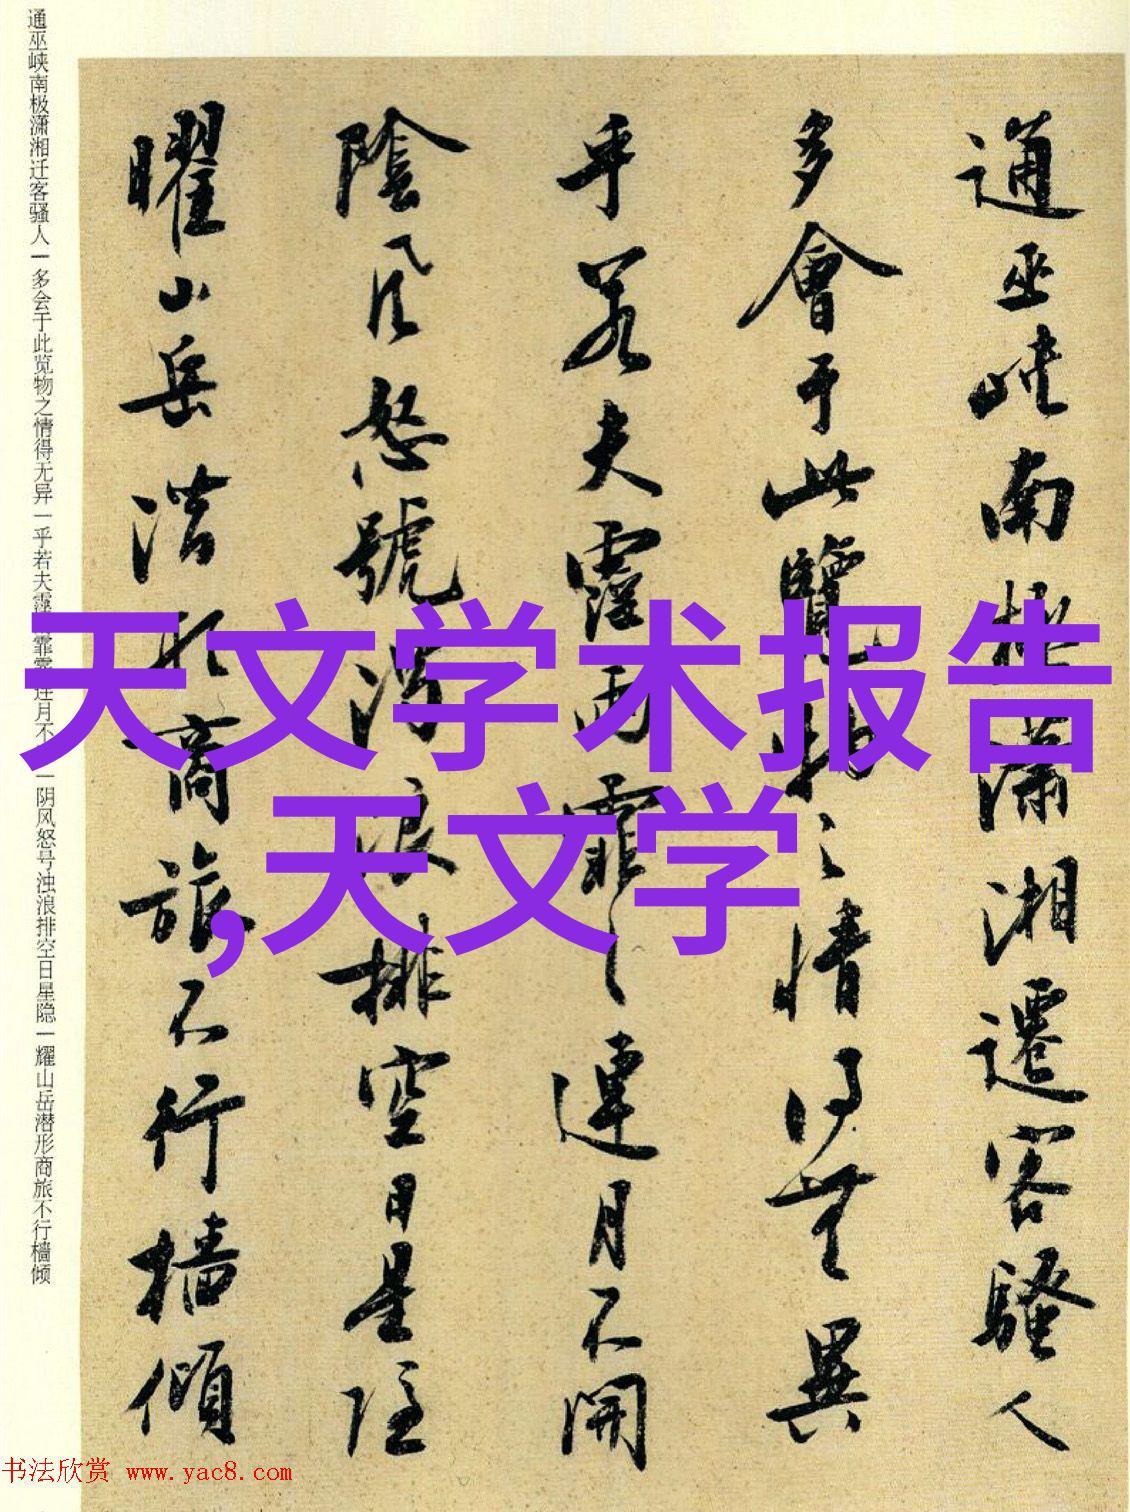 通巫峡南極潇湘遷客騷人
多會于此覽物之情得無異
乎若夫霪雨霏〻連月不開
陰風怒號濁浪排空日星隐
曜山岳潜形商旅不行檣傾
通巫峡南极潇湘迁客骚人一多会于此览物之情得无异一乎若夫霪 霏霏连月不 一阴风怒号浊浪排空日星隐一耀山岳潜形商旅不行樯倾
天文学术报告
,天文学
书法欣赏 www.yac8.com